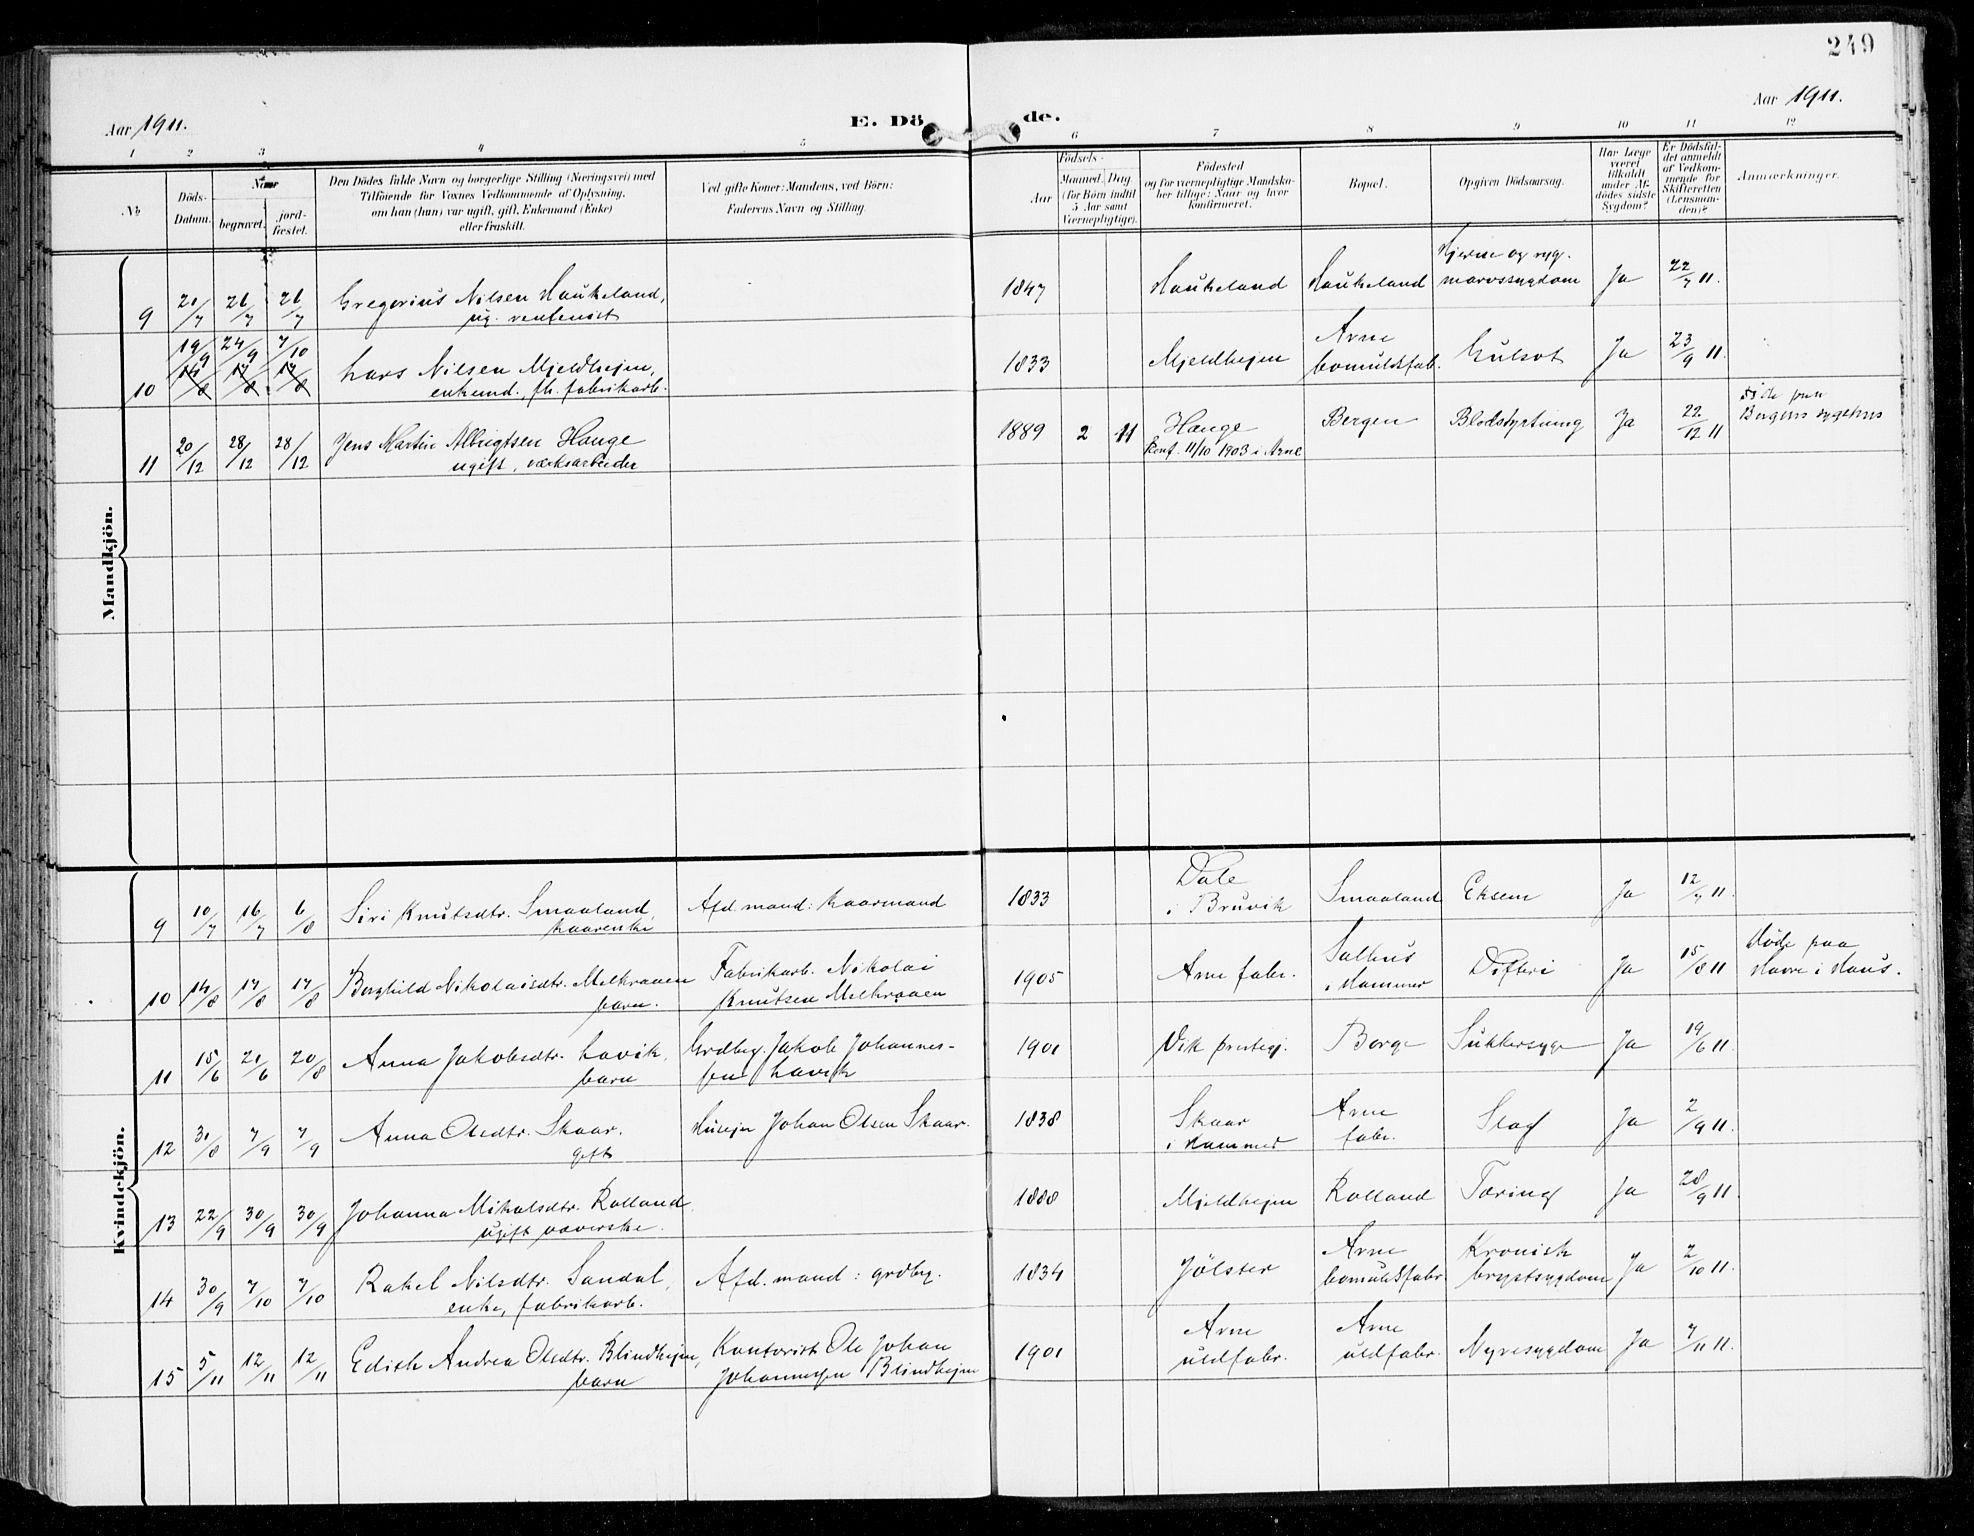 249
Aar 1911.
E. Dö
de.
Aar 1911.
1 2 3 4 5 6 7 8 9 10 11 12
№
Döds-Datum.
Naar
begravet.
jord-fæstet.
Den Dödes fulde Navn og borgerlige Stilling (Næringsvei) med
Tilföiende for Voxnes Vedkommende af Oplysning,
om han (hun) var ugift, gift, Enkemand (Enke)
eller fraskilt.
Ved gifte Koner: Mandens, ved Börn:
Faderens Navn og Stilling.
Födsels-
Aar
Maaned. Dag
(for Börn indtil
5 Aar samt
Værnepligtige).
Födested
og for værnepligtige Mandska-
ber tillige: Naar og hvor
konfirmeret.
Bopæl.
Opgiven Dödsaarsag.
Har Læge
været
tilkaldt
under Af-
dödes sidste
Sygdom?
Er Dödsfal-
det anmeldt
af Vedkom-
mende for
Skifteretten
(Lensman-
den)?
Anmærkninger.
Mandkjön.
9 21/7 26/7 26/7 Gregorius Nilsen Haukeland, 1847 Haukeland Haukeland Hjerne og ryg-
marvssygdom Ja 22/7 11.
ug.
19/9 24/9 7/10
10 14/8 17/8 17/8 Lars Nilsen Mjeldhejen, 1833 Mjeldhejen Arne
bomuldsfab. Gulsot Ja 23/9 11.
enkemd., fh. fabrikarb.
11 20/12 28/12 28/12 Jens Martin Albrigtsen Hauge 1889 2 11 Hauge Bergen Blodstyrtning Ja 22/12 11 Döde paa
Bergens sygehus
ugift, værksarbeider konf. 11/10 1903 i Arne
Kvindekjön.
9 10/7 16/7 6/8 Siri Knutsdtr. Smaaland, Afd. mand: kaarmand 1833 Dale
i Bruvik Smaaland Eksem Ja 12/7 11.
kaarenke
10 14/8 17/8 17/8 Borghild Nikolaisdtr. Melkraaen Fabrikarb. Nikolai
Knutsen Melkraaen 1905 Arne fabr. Salhus
i Hammer Difteri Ja 15/8 11 Döde paa
Havre i Haus.
barn.
11 15/6 21/6 20/8 Anna Jakobsdtr. Lavik, Grdbrg. Jakob Johannes-
sen Lavik 1901 Vik prestegj. Borge Sukkersyge Ja 19/6 11.
barn
12 31/8 7/9 7/9 Anna Olsdtr. Skaar. Husejer Johan Olsen Skaar. 1838 Skaar
i Hammer Arne
fabr. Slag Ja 2/9 11.
gift
13 22/9 30/9 30/9 Johanna Mikalsdtr. Rolland, 1888 Mjeldhejen Rolland Tæring Ja 28/9 11.
ugift væverske.
14 30/9 7/10 7/10 Rakel Nilsdtr. Sandal, Afd. mand: grdbrg. 1834 Jölster Arne
bomuldsfabr. Kronisk
brystsygdom Ja 2/10 11.
enke, fabrikarb.
15 5/11 12/11 12/11 Edith Andrea Olsdtr. Blindhejen, Kontorist Ole Johan
Johannessen Blindhejen 1901 Arne
uldfabr. Arne
uldfabr. Nyresygdom Ja 7/11 11.
barn